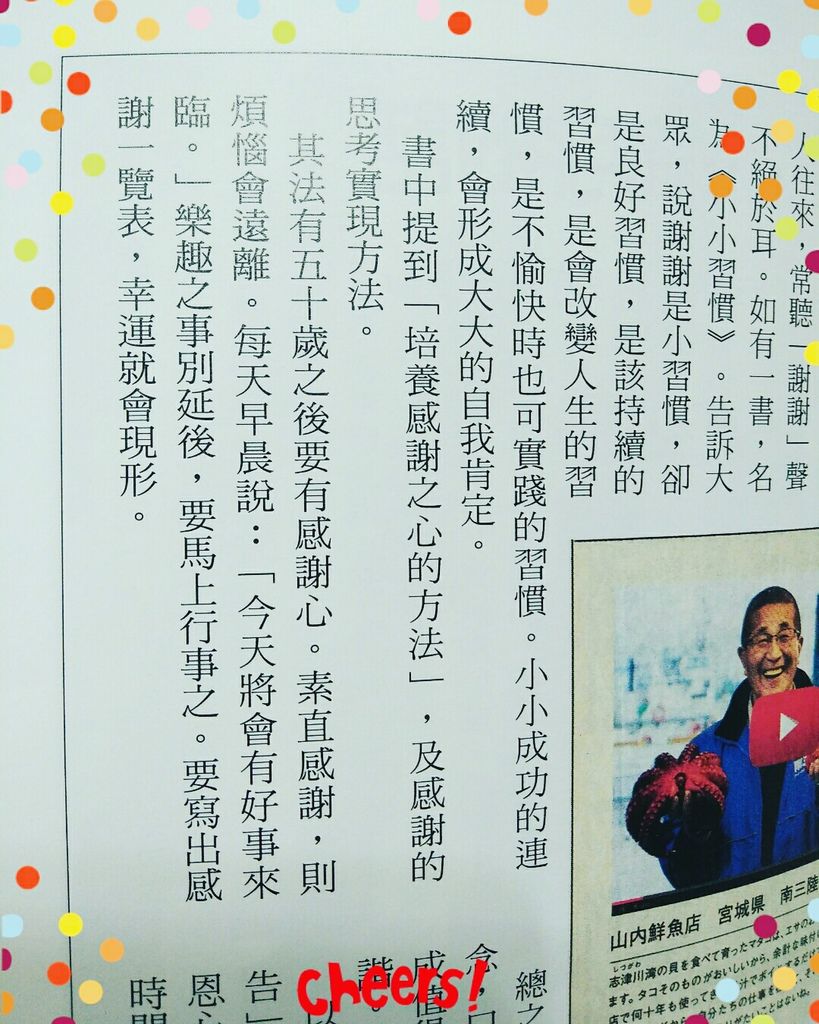 人往來，常聽「謝謝」聲
不絕於耳。如有一書，名
為《小小習慣》。告訴大
眾，說謝謝是小習慣，卻
是良好習慣，是該持續的
習慣，是會改變人生的習
慣，是不愉快時也可實踐的習慣。小小成功的連
續，會形成大大的自我肯定。
書中提到「培養感謝之心的方法」，及感謝的
思考實現方法。
其法有五十歲之後要有感謝心。素直感謝，則
煩惱會遠離。每天早晨說：「今天將會有好事來
臨。」樂趣之事別延後，要馬上行事之。要寫出感
謝一覽表，幸運就會現形。
山内鮮魚店 宮城県 南三陸
しづがわ
志津川湾の貝を食べて育ったマダコは、エサの
ます。タコそのものがおいしいから、余計な味付
店で何十年も使って
總之
念，
成值
諧。
告」
恩心
時間
Cheers!